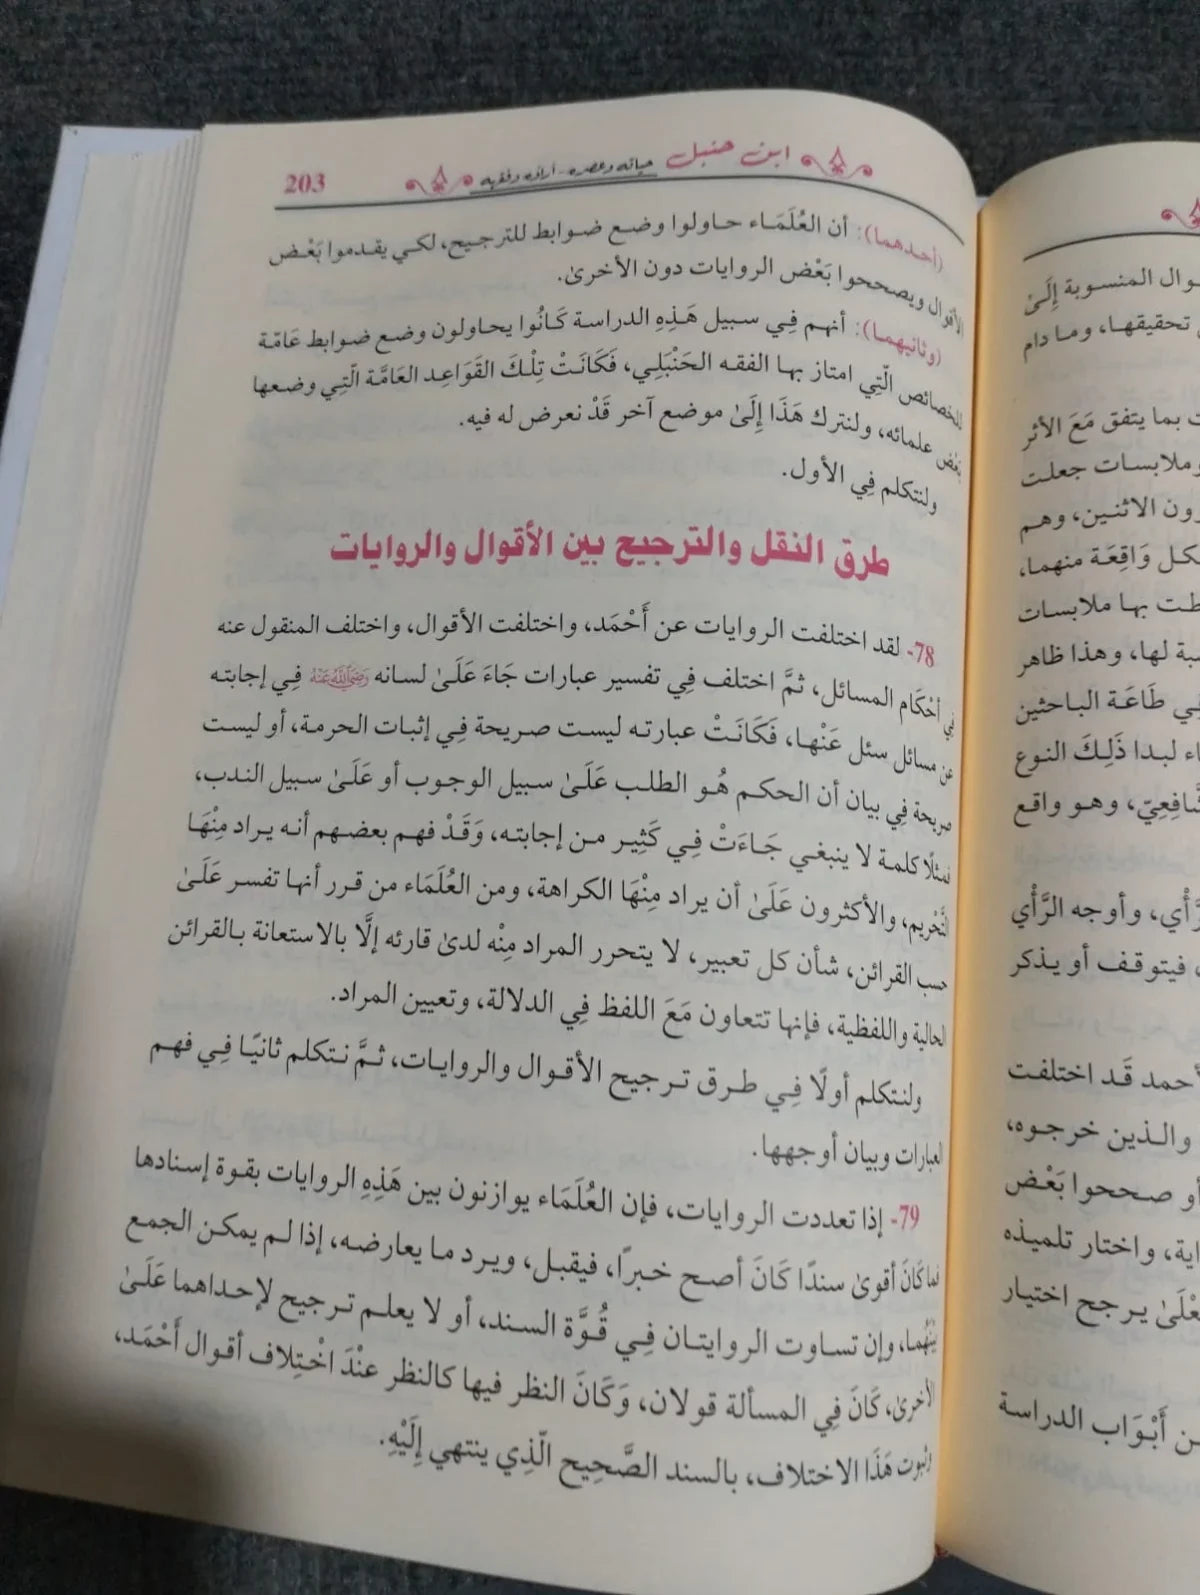 ابن حنبل حياته وعصره - آراؤه وفقهه
203
(أحدهما): أن العُلَمَاء حاولوا وضع ضوابط للترجيح، لكي يقدموا بَعْض
الأقوال ويصححوا بَعْض الروايات دون الأخرىٰ.
(وثانيهما): أنهم فِي سبيل هَذِهِ الدراسة كَانُوا يحاولون وضع ضوابط عَامّة
للخصائص الَّتِي امتاز بها الفقه الحَنْبَلِي، فَكَانَتْ تِلْكَ القَوَاعِد العَامَّة الَّتِي وضعها
بَعْض علمائه، ولنترك هَذَا إِلَىٰ موضع آخر قَدْ نعرض له فيه.
ولنتكلم فِي الأول.
طرق النقل والترجيح بين الأقوال والروايات
78- لقد اختلفت الروايات عن أَحْمَد، واختلفت الأقوال، واختلف المنقول عنه
فِي أَحْكَام المسائل، ثمَّ اختلف فِي تفسير عبارات جَاءَ عَلَىٰ لسانه رَضِيَ اللَّهُ عَنْهُ فِي إجابته
عن مسائل سئل عَنْها، فَكَانَتْ عبارته ليست صريحة فِي إثبات الحرمة، أو ليست
صريحة فِي بيان أن الحكم هُو الطلب عَلَىٰ سبيل الوجوب أو عَلَىٰ سبيل الندب،
فمثلًا كلمة لا ينبغي جَاءَتْ فِي كَثِير من إجابته، وَقَدْ فهم بعضهم أنه يراد مِنْهَا
التَّحْرِيم، والأكثرون عَلَىٰ أن يراد مِنْهَا الكراهة، ومن العُلَمَاء من قرر أنها تفسر عَلَىٰ
حسب القرائن، شأن كل تعبير، لا يتحرر المراد مِنْه لدىٰ قارئه إلَّا بالاستعانة بالقرائن
الحالية واللفظية، فإنها تتعاون مَعَ اللفظ فِي الدلالة، وتعيين المراد.
ولنتكلم أولًا فِي طرق ترجيح الأقوال والروايات، ثمَّ نتكلم ثانيًا فِي فهم
العبارات وبيان أوجهها.
79- إذا تعددت الروايات، فإن العُلَمَاء يوازنون بين هَذِهِ الروايات بقوة إسنادها
فما كَانَ أقوىٰ سندًا كَانَ أصح خبرًا، فيقبل، ويرد ما يعارضه، إذا لم يمكن الجمع
بَيْنَهُما، وإن تساوت الروايتان فِي قُوَّة السند، أو لا يعلم ترجيح لإحداهما عَلَىٰ
الأخرىٰ، كَانَ فِي المسألة قولان، وَكَانَ النظر فيها كالنظر عنْدَ اخْتِلاف أقوال أَحْمَد،
وثبوت هَذَا الاختلاف، بالسند الصَّحِيح الَّذِي ينتهي إِلَيْهِ.
وال المنسوبة إِلَىٰ
تحقيقها، وما دام
بما يتفق مَعَ الأثر
وملابسات جعلت
رون الاثنين، وهم
كل وَاقِعَة منهما،
طت بها ملابسات
سبة لها، وهذا ظاهر
فِي طَاعَة الباحثين
اء لبدا ذَلِكَ النوع
شَّافِعِيّ، وهو واقع
رَّأْي، وأوجه الرَّأْي
، فيتوقف أو يذكر
أحمد قَد اختلفت
والذين خرجوه،
أو صححوا بَعْض
اية، واختار تلميذه
عْلَىٰ يرجح اختيار
ن أَبْوَاب الدراسة